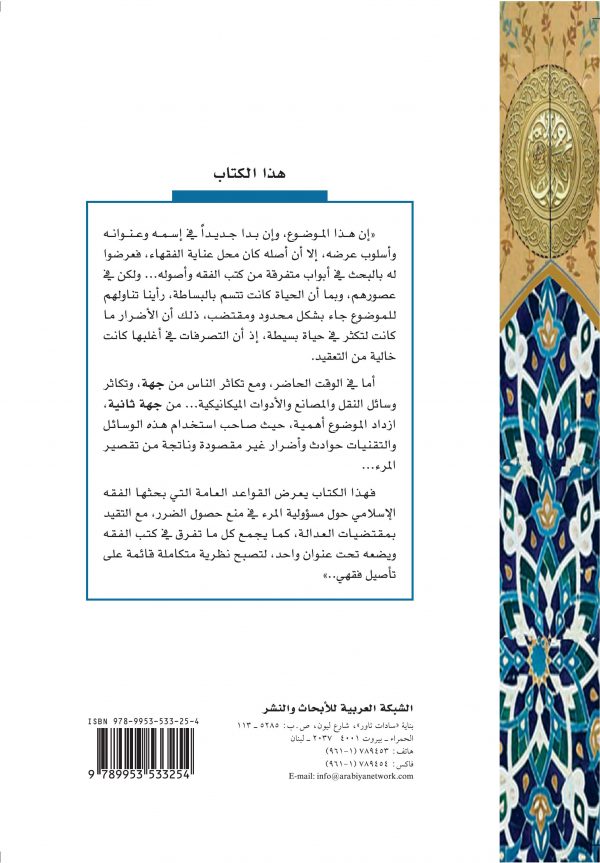 هذا الكتاب
«إن هذا الموضوع، وإن بدا جديداً في إسمه وعنوانه
وأسلوب عرضه، إلا أن أصله كان محل عناية الفقهاء، فعرضوا
له بالبحث في أبواب متفرقة من كتب الفقه وأصوله... ولكن في
عصورهم، وبما أن الحياة كانت تتسم بالبساطة، رأينا تناولهم
للموضوع جاء بشكل محدود ومقتضب، ذلك أن الأضرار ما
كانت لتكثر في حياة بسيطة، إذ أن التصرفات في أغلبها كانت
خالية من التعقيد.
أما في الوقت الحاضر، ومع تكاثر الناس من جهة، وتكاثر
وسائل النقل والمصانع والأدوات الميكانيكية... من جهة ثانية،
ازداد الموضوع أهمية، حيث صاحب استخدام هذه الوسائل
والتقنيات حوادث وأضرار غير مقصودة وناتجة من تقصير
المرء...
فهذا الكتاب يعرض القواعد العامة التي بحثها الفقه
الإسلامي حول مسؤولية المرء في منع حصول الضرر، مع التقيد
بمقتضيات العدالة، كما يجمع كل ما تفرق في كتب الفقه
ويضعه تحت عنوان واحد، لتصبح نظرية متكاملة قائمة على
تأصيل فقهي..»
الشبكة العربية للأبحاث والنشر
بناية «سادات تاور»، شارع ليون، ص.ب: ٥٢٨٥ ـ ١١٣
الحمراء ـ بيروت ٤٠٠١ ٢٠٣٧ ـ لبنان
هاتف: ٧٨٩٤٥٣ (١-٩٦١)
فاكس: ٧٨٩٤٥٤ (١-٩٦١)
E-mail: info@arabiyanetwork.com
ISBN 978-9953-533-25-4
9 789953 533254